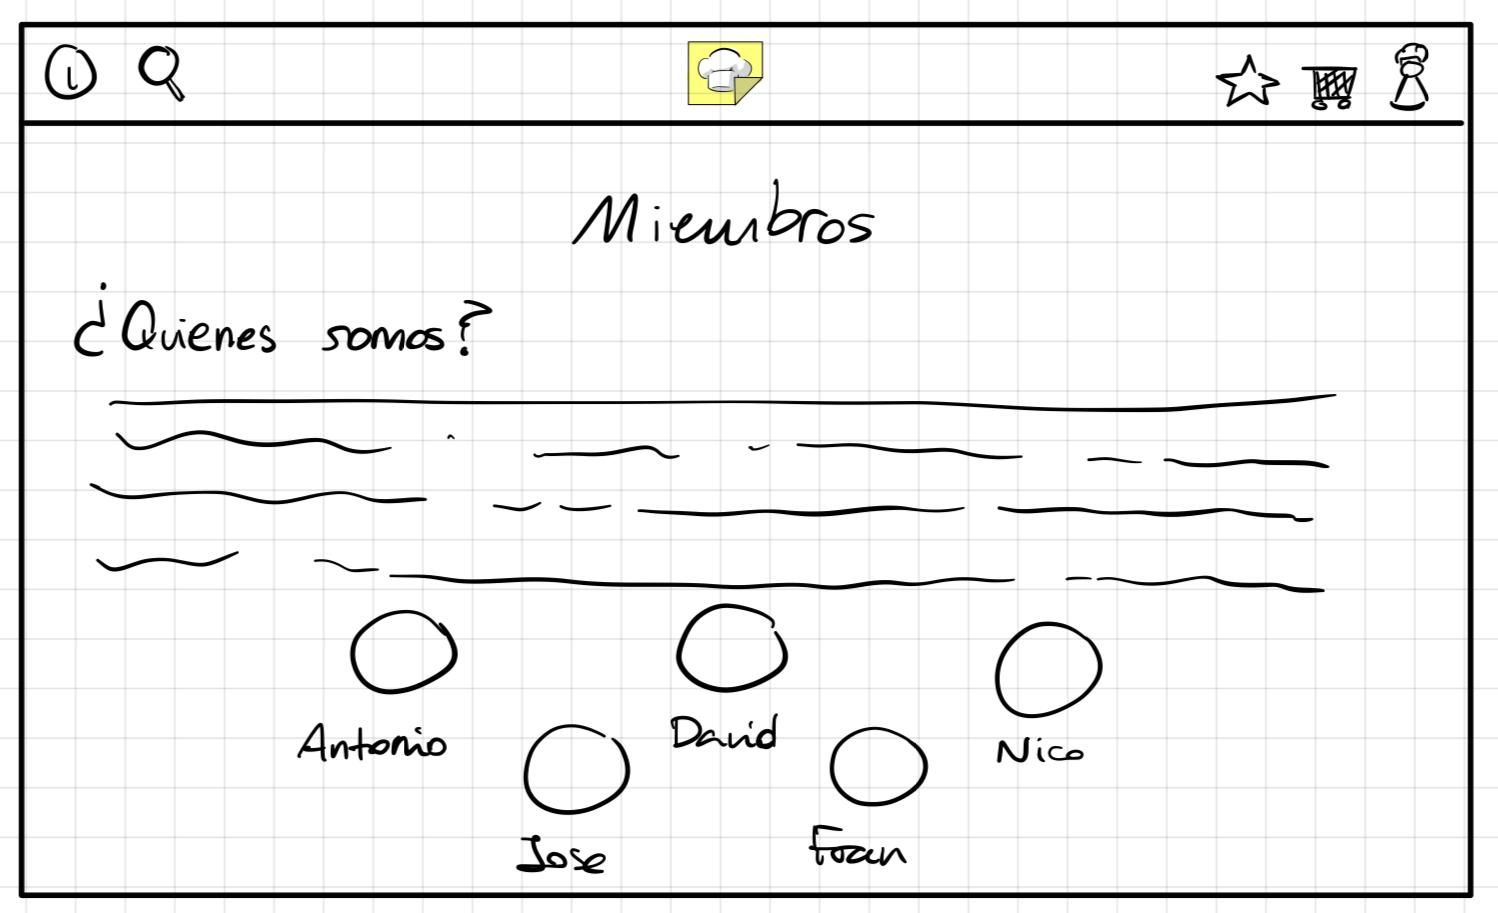 Miembros
¿Quienes somos?
Antonio
David
Nico
Jose
Fran